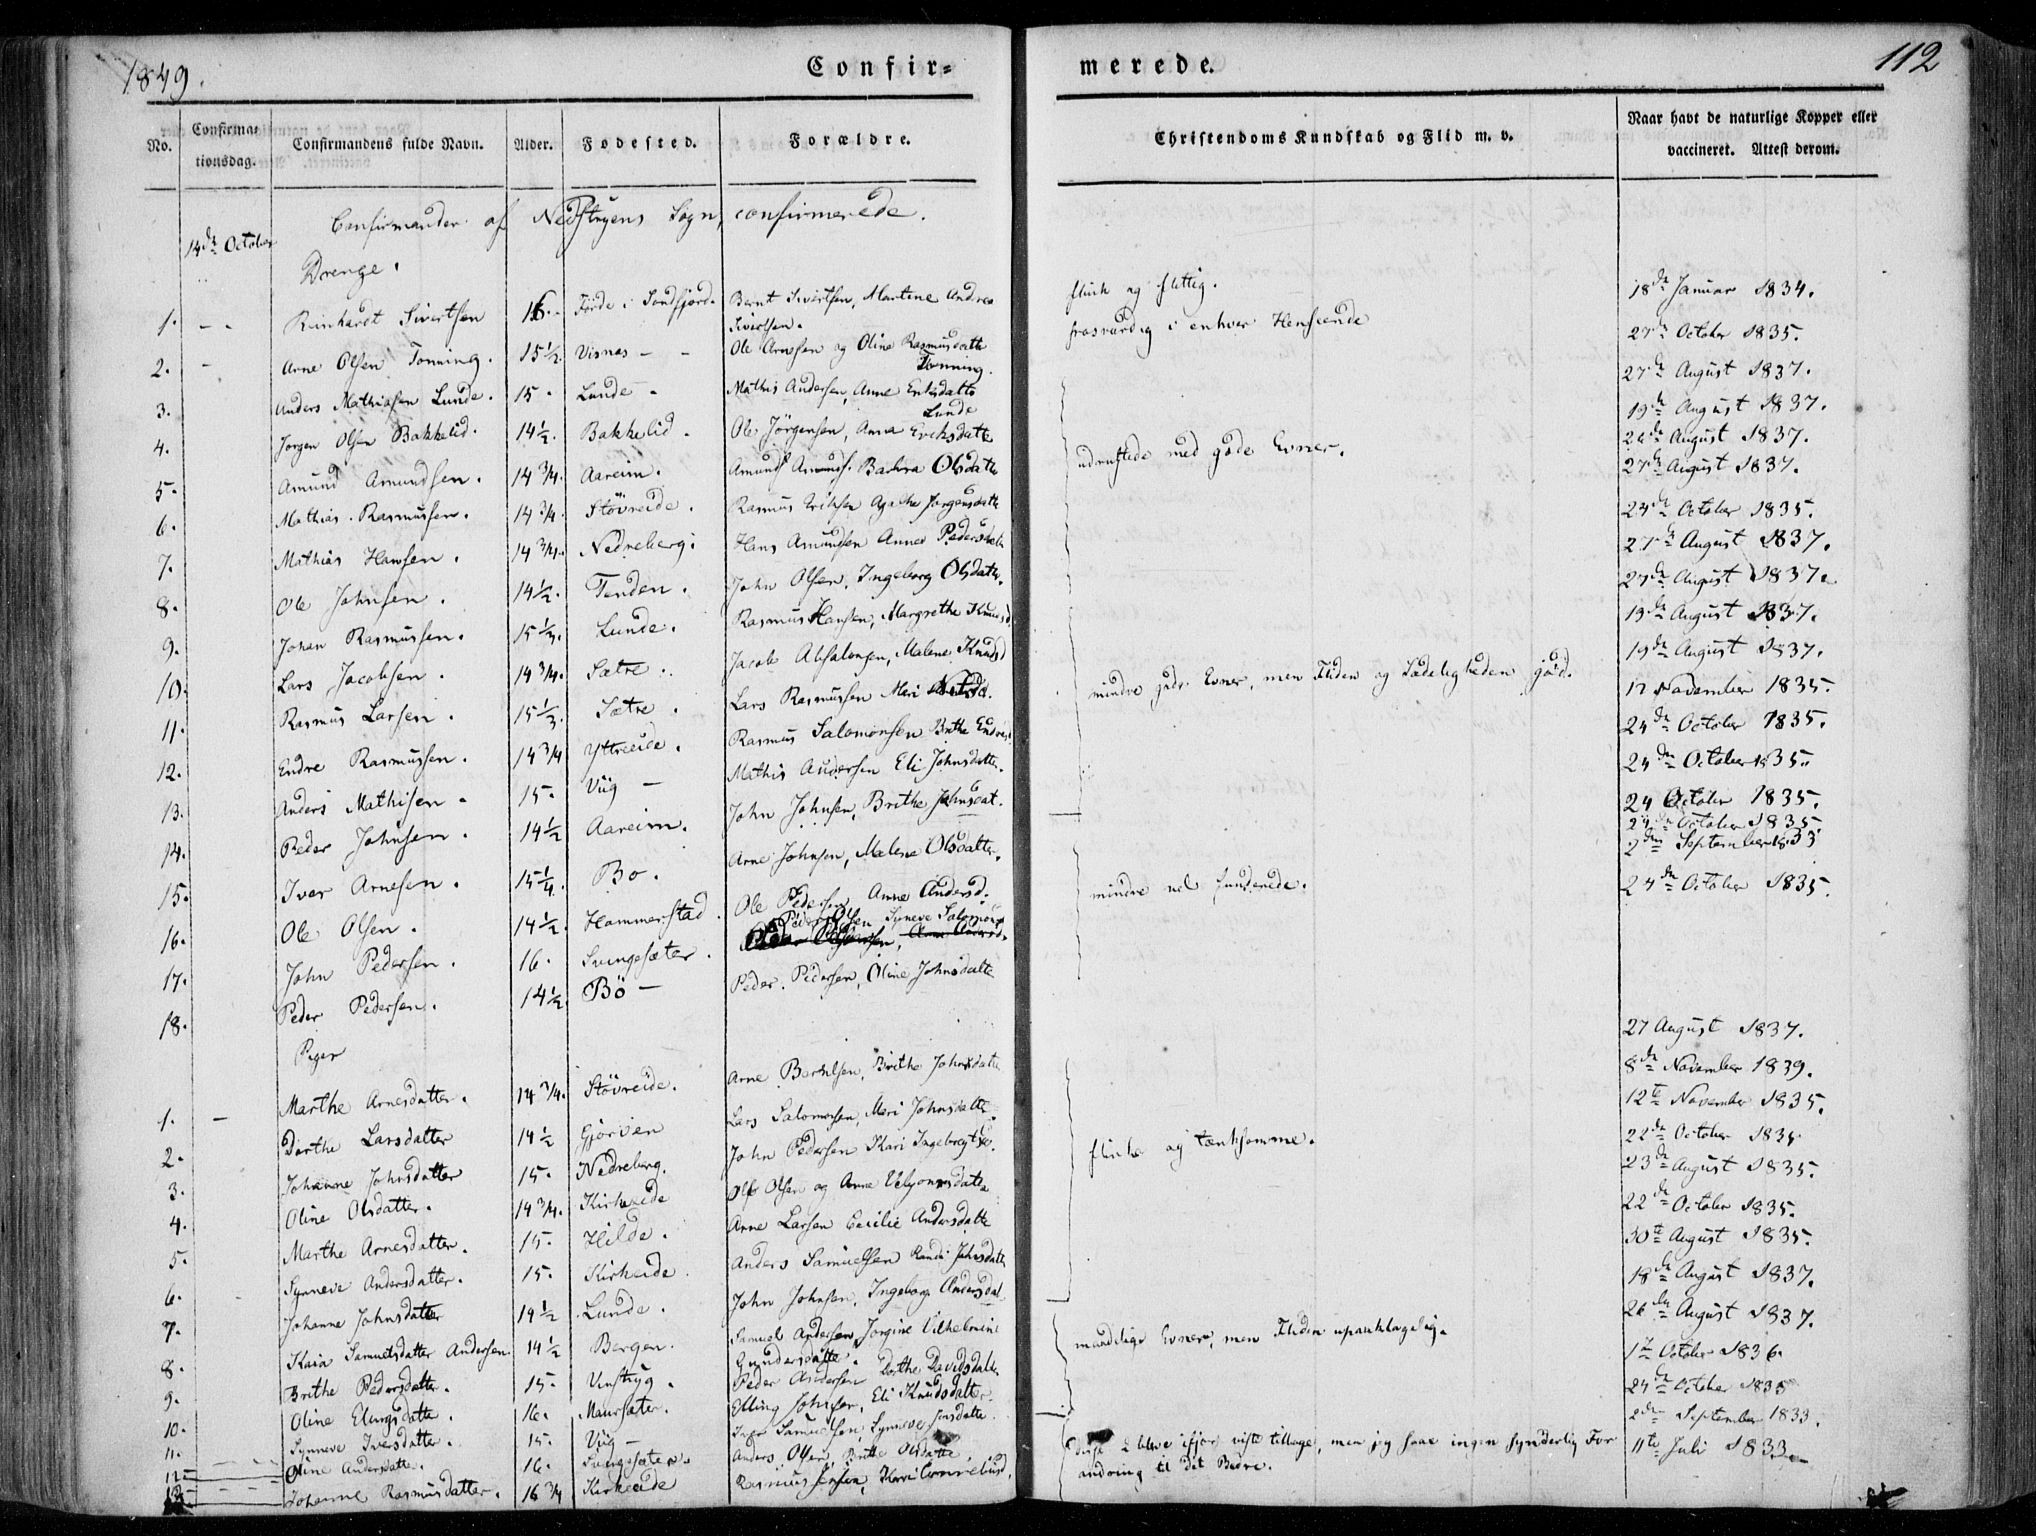 1849.
Confir=
merede.
112
No.
Confirma=
tionsdag.
Confirmandens fulde Navn.
Alder.
Fødested.
Forældre.
Christendoms Kundskab og Flid m. v.
Naar havt de naturlige Kopper eller
vaccineret. Attest derom.
14de October
Confirmander af Nedstryens Sogn, confirmerede.
Drenge.
1. Reinhardt Sivertsen 16. Førde i Søndfjord. Bernt Sivertsen, Martene Andrea Sivertsen. flink og flittig. 18de Januar 1834.
2. Arne Olsen Tonning. 15½. Visnes Ole Arnesen og Oline Rasmusdatter Tonning. prosværdig i enhver Henseende 27de October 1835.
3. Anders Mathiasen Lunde. 15. Lunde. Mathis Andersen, Anne Eriksdatter Lunde 27de August 1837.
4. Jørgen Olsen Bakkelid. 14½. Bakkelid. Ole Jörgensen, Anna Eriksdatter 19de August 1837.
5. Amund Amundsen. 14¾. Aareim. Amund Amunds. Olsdatter udrustede med gode Evner. 26de August 1837.
6. Mathias Rasmussen. 14¾. Stövreide. Rasmus Agathe Jørgensdatter 27de August 1837.
7. Mathias Hansen. 14¾. Nedreberg. Hans Amundsen Anne Pedersdatter 24de October 1835.
8. Ole Johnsen. 14½. Tenden. John Olsen, Ingeborg Olsdatter. 27de August 1837.
9. Johan Rasmussen. 15⅓. Lunde. Rasmus Hansen, Margrethe Knudsd 27de August 1837.
10. Lars Jacobsen. 14¾. Sætre. Jacob Absalonsen, Malene Knudsd 19de August 1837.
11. Rasmus Larsen. 15⅓. Sætre. Lars Rasmussen Mari mindre gode Evner, men Fliden og Sædeligheden god. 19de August 1837.
12. Endre Rasmussen. 14¾ Yttreeide. Rasmus Salomonsen Brithe 17 November 1835.
13. Anders Mathisen. 15. Viig Mathis Andersen Eli Johnsdatter. 24de October 1835.
14. Peder Johnsen. 14½ Aareim. John Johnsen, Brithe Johnsdat. 24de October 1835.
15. Iver Arnesen. 15¼. Bø. Arne Johnsen, Malene Olsdatter. 24 October 1835.
16. Ole Olsen. 14½. Hammerstad. Ole Pedersen Anne Andersd. mindre vel funderede. 24de October 1835.
17. John Pedersen. 16. Svingesæter. Peder Olsen Synneve Salomonsd 2den September 1833
18. Peder Pedersen. 14½. Bö Peder Pedersen, Oline Johnsdatter 24de October 1835.
Piger
1. Marthe Arnesdatter. 14¾. Stövreide. Arne Brithe Johnsdatter 27 August 1837.
2. Dorthe Larsdatter 14½ Gjörven Lars Salomonsen, Mari Johnsdatter. 8de November 1839.
3. Johanne Johnsdatter 15. Nedreberg. John Pedersen Kari 12te November 1835.
4. Oline Olsdatter. 14¾. Kirkeide Ole Olsen og Anne flinke og tænksomme. 22de October 1835
5. Marthe Arnesdatter. 15. Hilde. Arne Larsen Cecilie Andersdatter 23de August 1835.
6. Synneve Andersdatter. 15. Kirkeide Anders Samuelsen Randi Johnsdatter 22de October 1835.
7. Johanne Johnsdatter 14½ Lunde. John Johnsen, Ingeborg Andersdat 30te August 1835.
8. Kaia Samuelsdatter Andersen. 14½ Bergen. Samuel Andersen, Jorgine Vilhelmine Gundersdatter. maadelige Evner, men Fliden upaaklagelig. 18de August 1837.
9. Brithe Pedersdatter. 15. Vinstryg. Peder Andersen Dorthe Davidsdatter 26de August 1837.
10. Oline Ellingsdatter. 16. Maursæter. Elling Johnsen, Eli Knudsdatter 1te October 1836.
11. Synneve Iversdatter. 15. Viig Iver Samuelsen, Synneve Jonsdatter. 24de October 1835
12. Oline Andersdatter. 16. Svingesæter. Anders Olsen, Brithe Olsdatter 2den September 1833.
13. Johanne Rasmusdatter. 16¾ Kirkeide Rasmus Jensen, Kari disse 2 bleve ifjor viste tilbage, men jeg saae ingen synderlig For
andring til det Bedre. 11te Juli 1833.